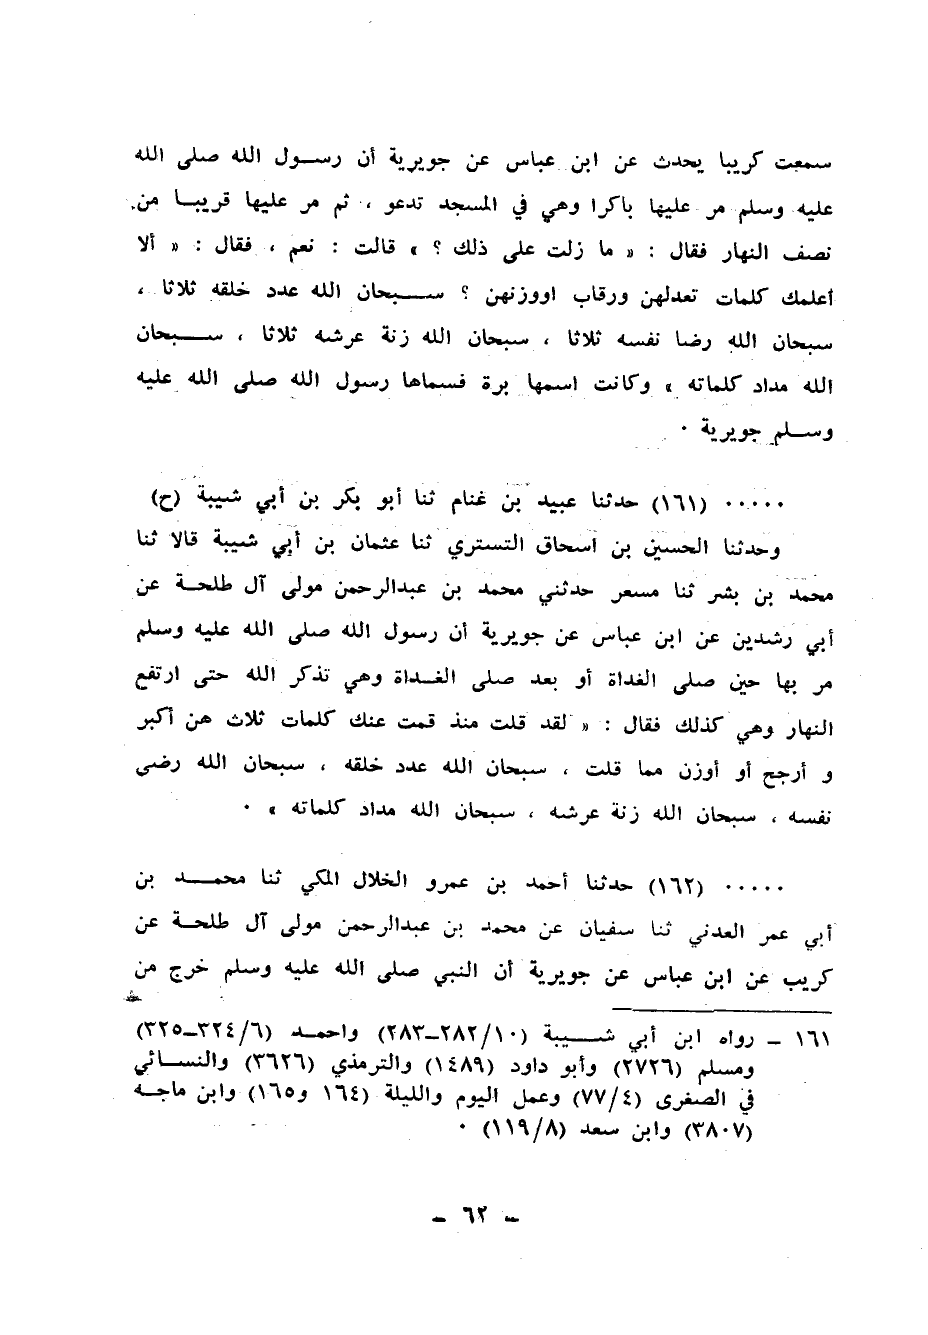 سمعت كريبا يحدث عن ابن عباس عن جويرية أن رسول الله صلى الله
عليه وسلم مر عليها باكرا وهي في المسجد تدعو ، ثم مر عليها قريبا من
نصف النهار فقال : « ما زلت على ذلك ؟ » قالت : نعم ، فقال : « ألا
أعلمك كلمات تعدلهن ورقاب اووزنهن ؟ سبحان الله عدد خلقه ثلاثا ،
سبحان الله رضا نفسه ثلاثا ، سبحان الله زنة عرشه ثلاثا ، سبحان
الله مداد كلماته » وكانت اسمها برة فسماها رسول الله صلى الله عليه
وسلم جويرية ٠
٠٠٠٠٠ (١٦١) حدثنا عبيد بن غنام ثنا أبو بكر بن أبي شيبة (ح)
وحدثنا الحسين بن اسحاق التستري ثنا عثمان بن أبي شيبة قالا ثنا
محمد بن بشر ثنا مسعر حدثني محمد بن عبدالرحمن مولى آل طلحة عن
أبي رشدين عن ابن عباس عن جويرية أن رسول الله صلى الله عليه وسلم
مر بها حين صلى الغداة أو بعد صلى الغداة وهي تذكر الله حتى ارتفع
النهار وهي كذلك فقال : « لقد قلت منذ قمت عنك كلمات ثلاث هن أكبر
و أرجح أو أوزن مما قلت ، سبحان الله عدد خلقه ، سبحان الله رضى
نفسه ، سبحان الله زنة عرشه ، سبحان الله مداد كلماته » ٠
٠٠٠٠٠ (١٦٢) حدثنا أحمد بن عمرو الخلال المكي ثنا محمد بن
أبي عمر العدني ثنا سفيان عن محمد بن عبدالرحمن مولى آل طلحة عن
كريب عن ابن عباس عن جويرية أن النبي صلى الله عليه وسلم خرج من
١٦١ – رواه ابن أبي شيبة (١٠/٢٨٢–٢٨٣) واحمد (٦/٣٢٤–٣٢٥)
ومسلم (٢٧٢٦) وأبو داود (١٤٨٩) والترمذي (٣٦٢٦) والنسائي
في الصغرى (٤/٧٧) وعمل اليوم والليلة (١٦٤ و١٦٥) وابن ماجه
(٣٨٠٧) وابن سعد (٨/١١٩) ٠
– ٦٢ –